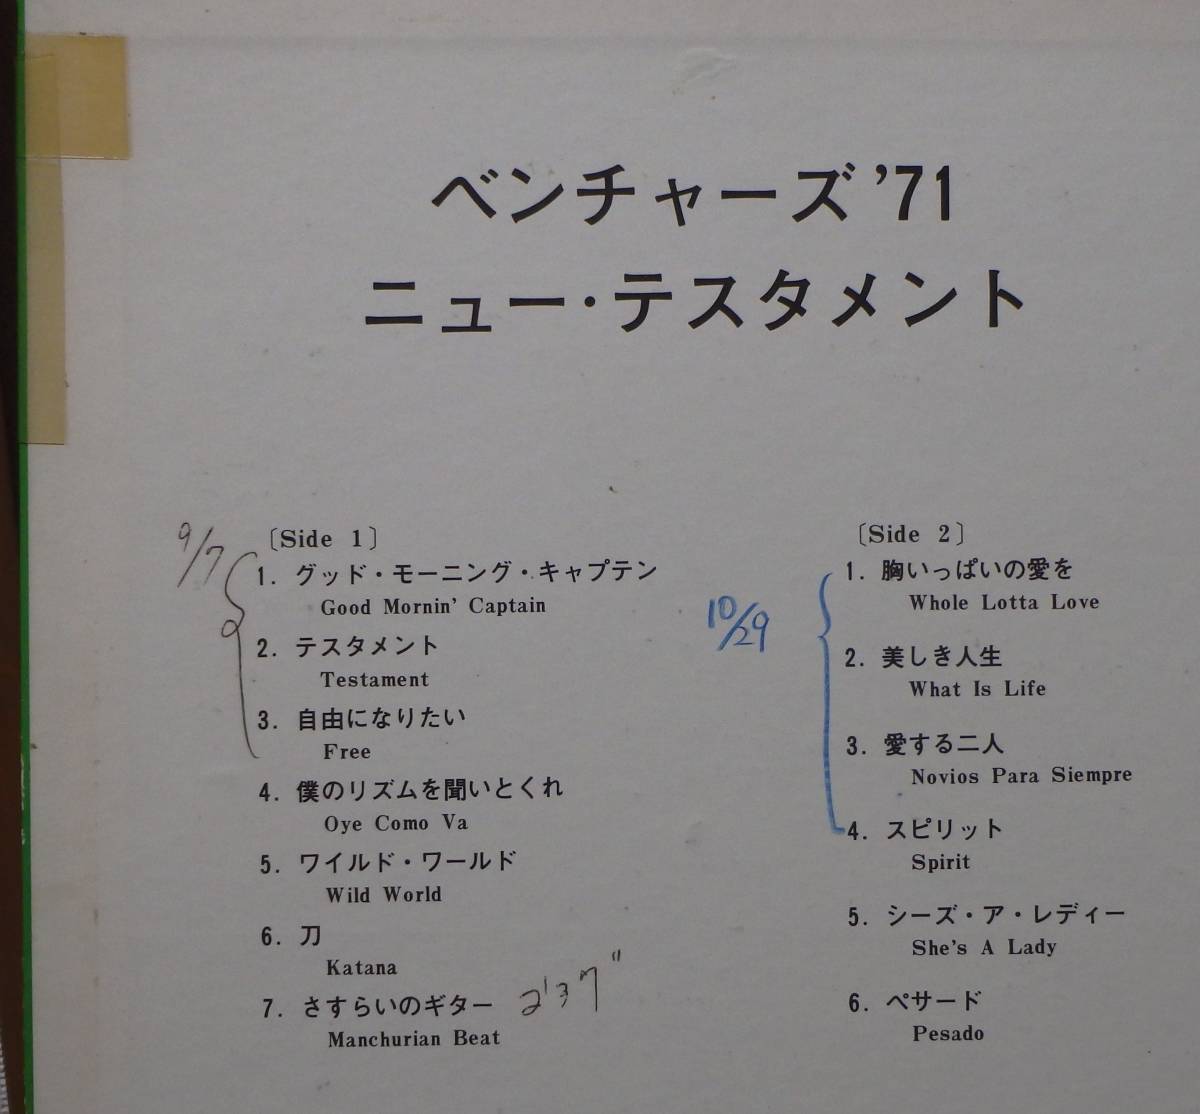 ベンチャーズ'71
ニュー・テスタメント
9/7
〔Side 1〕
1. グッド・モーニング・キャプテン
Good Mornin' Captain
2. テスタメント
Testament
3. 自由になりたい
Free
4. 僕のリズムを聞いとくれ
Oye Como Va
5. ワイルド・ワールド
Wild World
6. 刀
Katana
7. さすらいのギター 2'37"
Manchurian Beat
10/29
〔Side 2〕
1. 胸いっぱいの愛を
Whole Lotta Love
2. 美しき人生
What Is Life
3. 愛する二人
Novios Para Siempre
4. スピリット
Spirit
5. シーズ・ア・レディー
She's A Lady
6. ペサード
Pesado